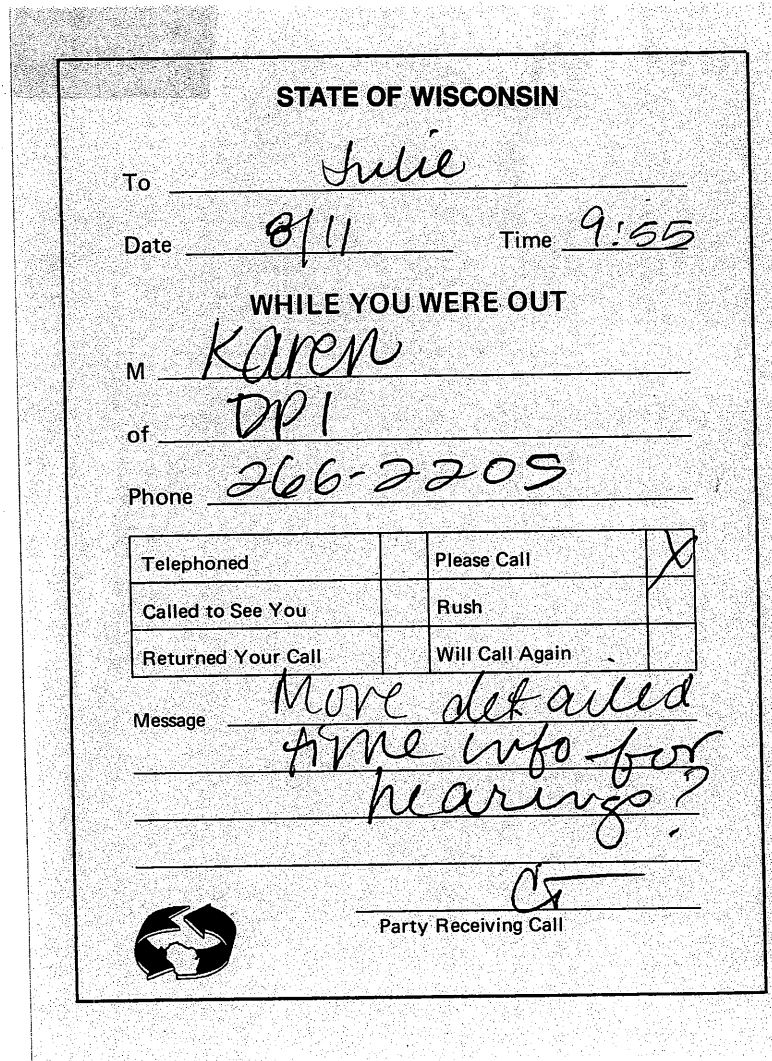 STATE OF WISCONSIN
To Julie
Date 8/11 Time 9:55
WHILE YOU WERE OUT
M Karen
of DPI
Phone 266-2205
Telephoned Please Call X
Called to See You Rush
Returned Your Call Will Call Again
Message More detailed
time info for
hearings?
CT
Party Receiving Call